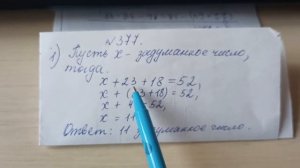 №377.
1) Пусть х - задуманное число,
тогда.
х + 23 + 18 = 52,
х + (23 + 18) = 52,
х + 4 = 52,
х = 11
Ответ: 11 задуманное число.